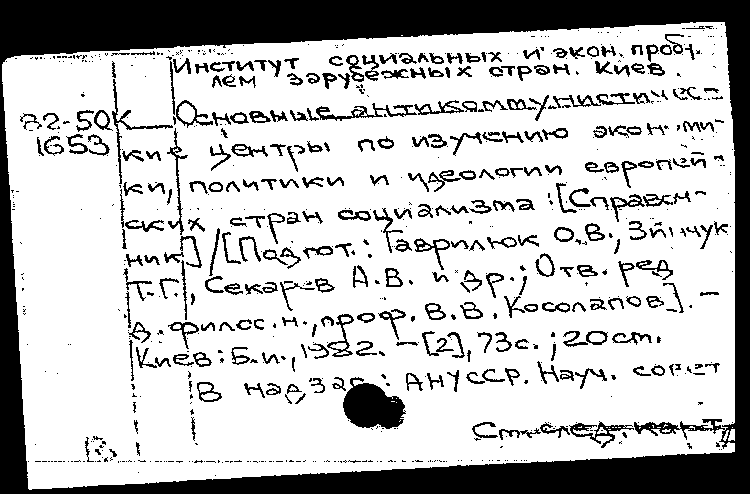 Институт социальных и экон. проб-
лем зарубежных стран. Киев.
82-50К Основные антикоммунистичес-
1653 кие центры по изучению экономи-
ки, политики и идеологии европей-
ских стран социализма : [Справоч-
ник] / [Подгот.: Гаврилюк О.В., Зйнчук
Т.Г., Секарев А.В. и др.; Отв. ред
д. филос. н., проф. В.В. Косолапов]. –
Киев : Б.и., 1982. – [2], 73с. ; 20cm.
В надзаг.: АНУССР. Науч. совет
См. след. карт
В